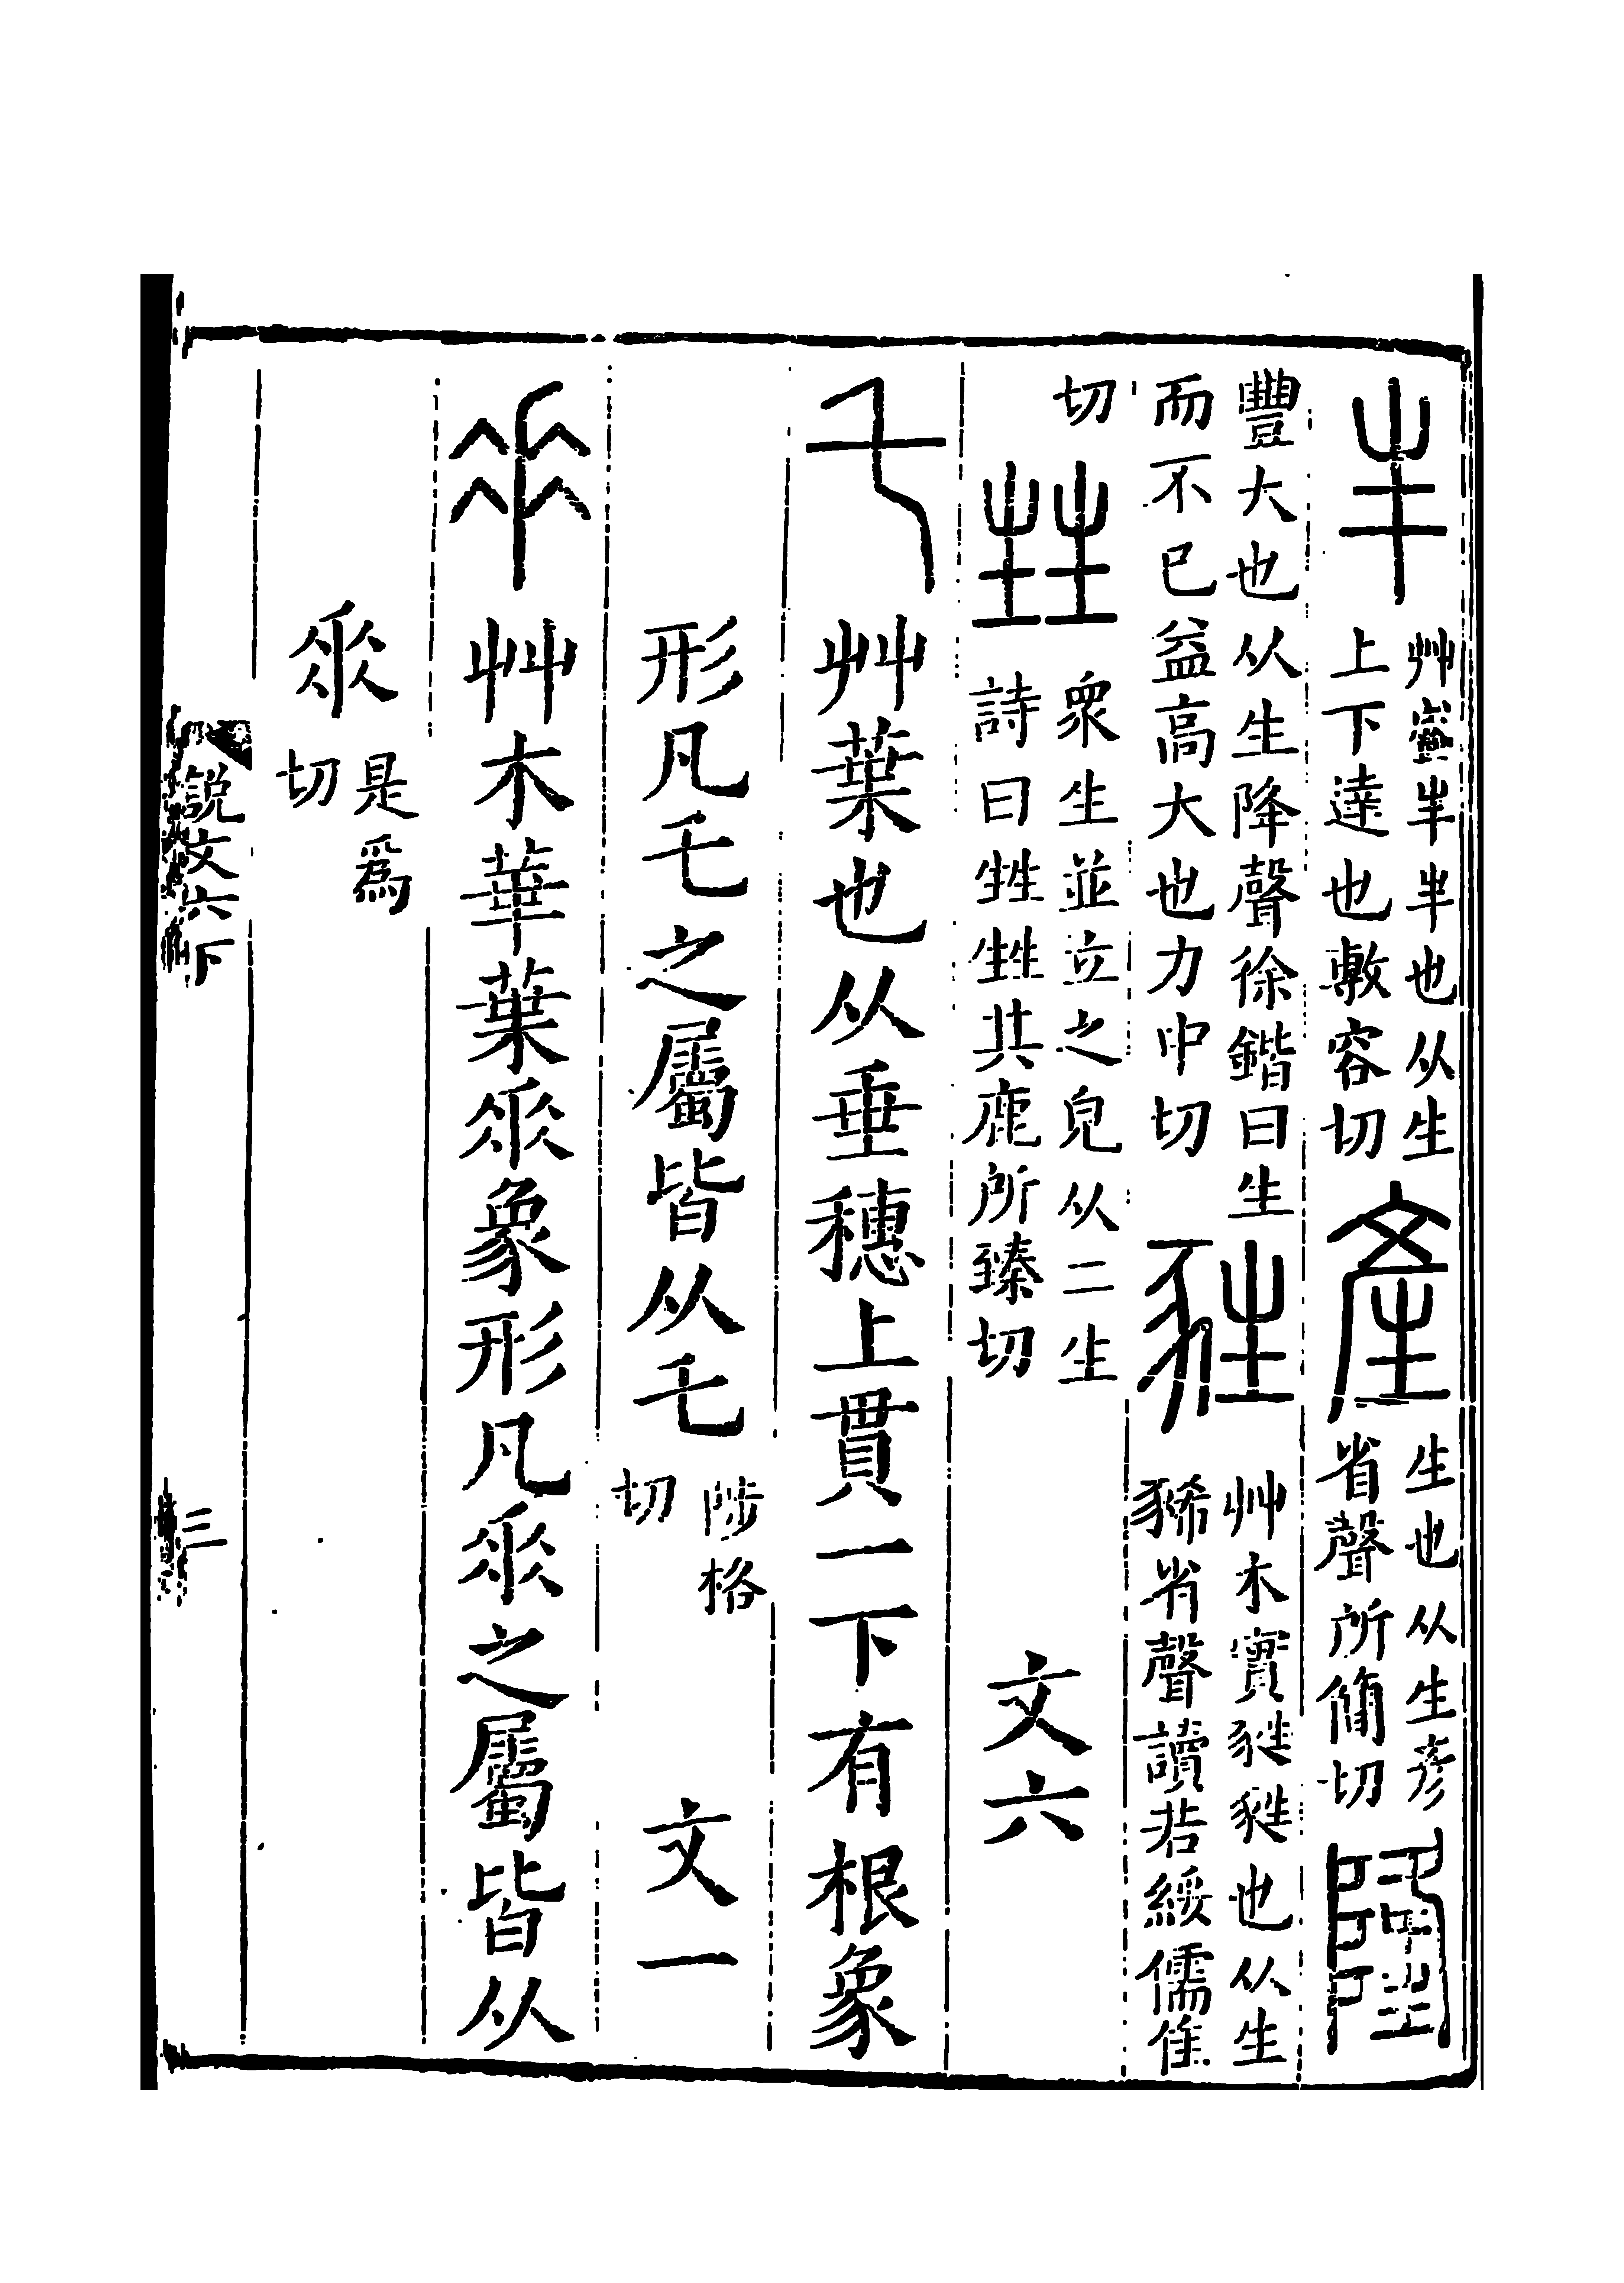 丰艸盛丰丰也从生上下達也敷容切產生也从生彥省聲所簡切隆
豐大也从生降聲徐鍇曰生而不已益高大也力中切甤艸木實甤甤也从生豨省聲讀若綏儒隹
切甡眾生並立之皃从二生詩曰甡甡共鹿所臻切 文六
乇艸葉也从垂穗上貫一下有根象
形凡乇之屬皆从乇陟格切 文一
𠂹艸木華葉𠂹象形凡𠂹之屬皆从
𠂹是爲切
説文六下 三